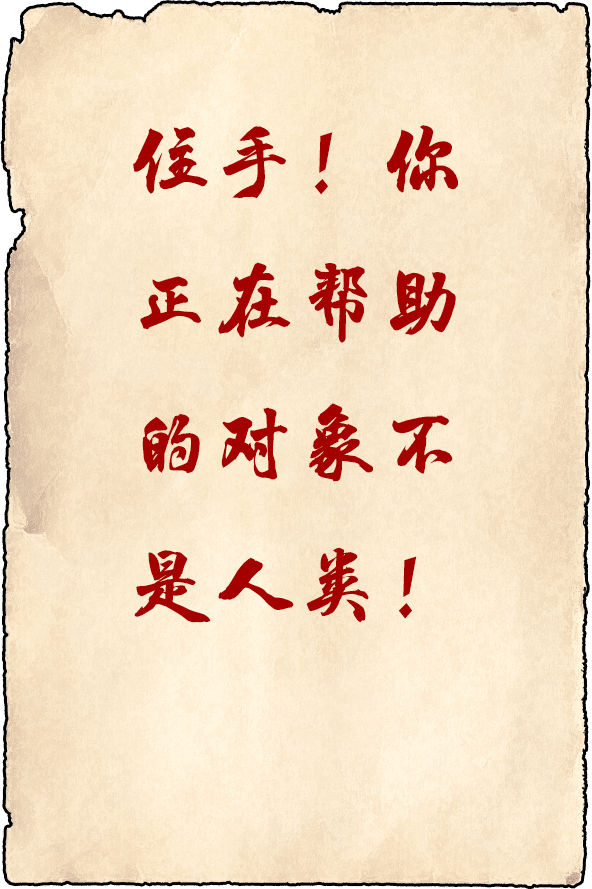 住手！你
正在帮助
的对象不
是人类！